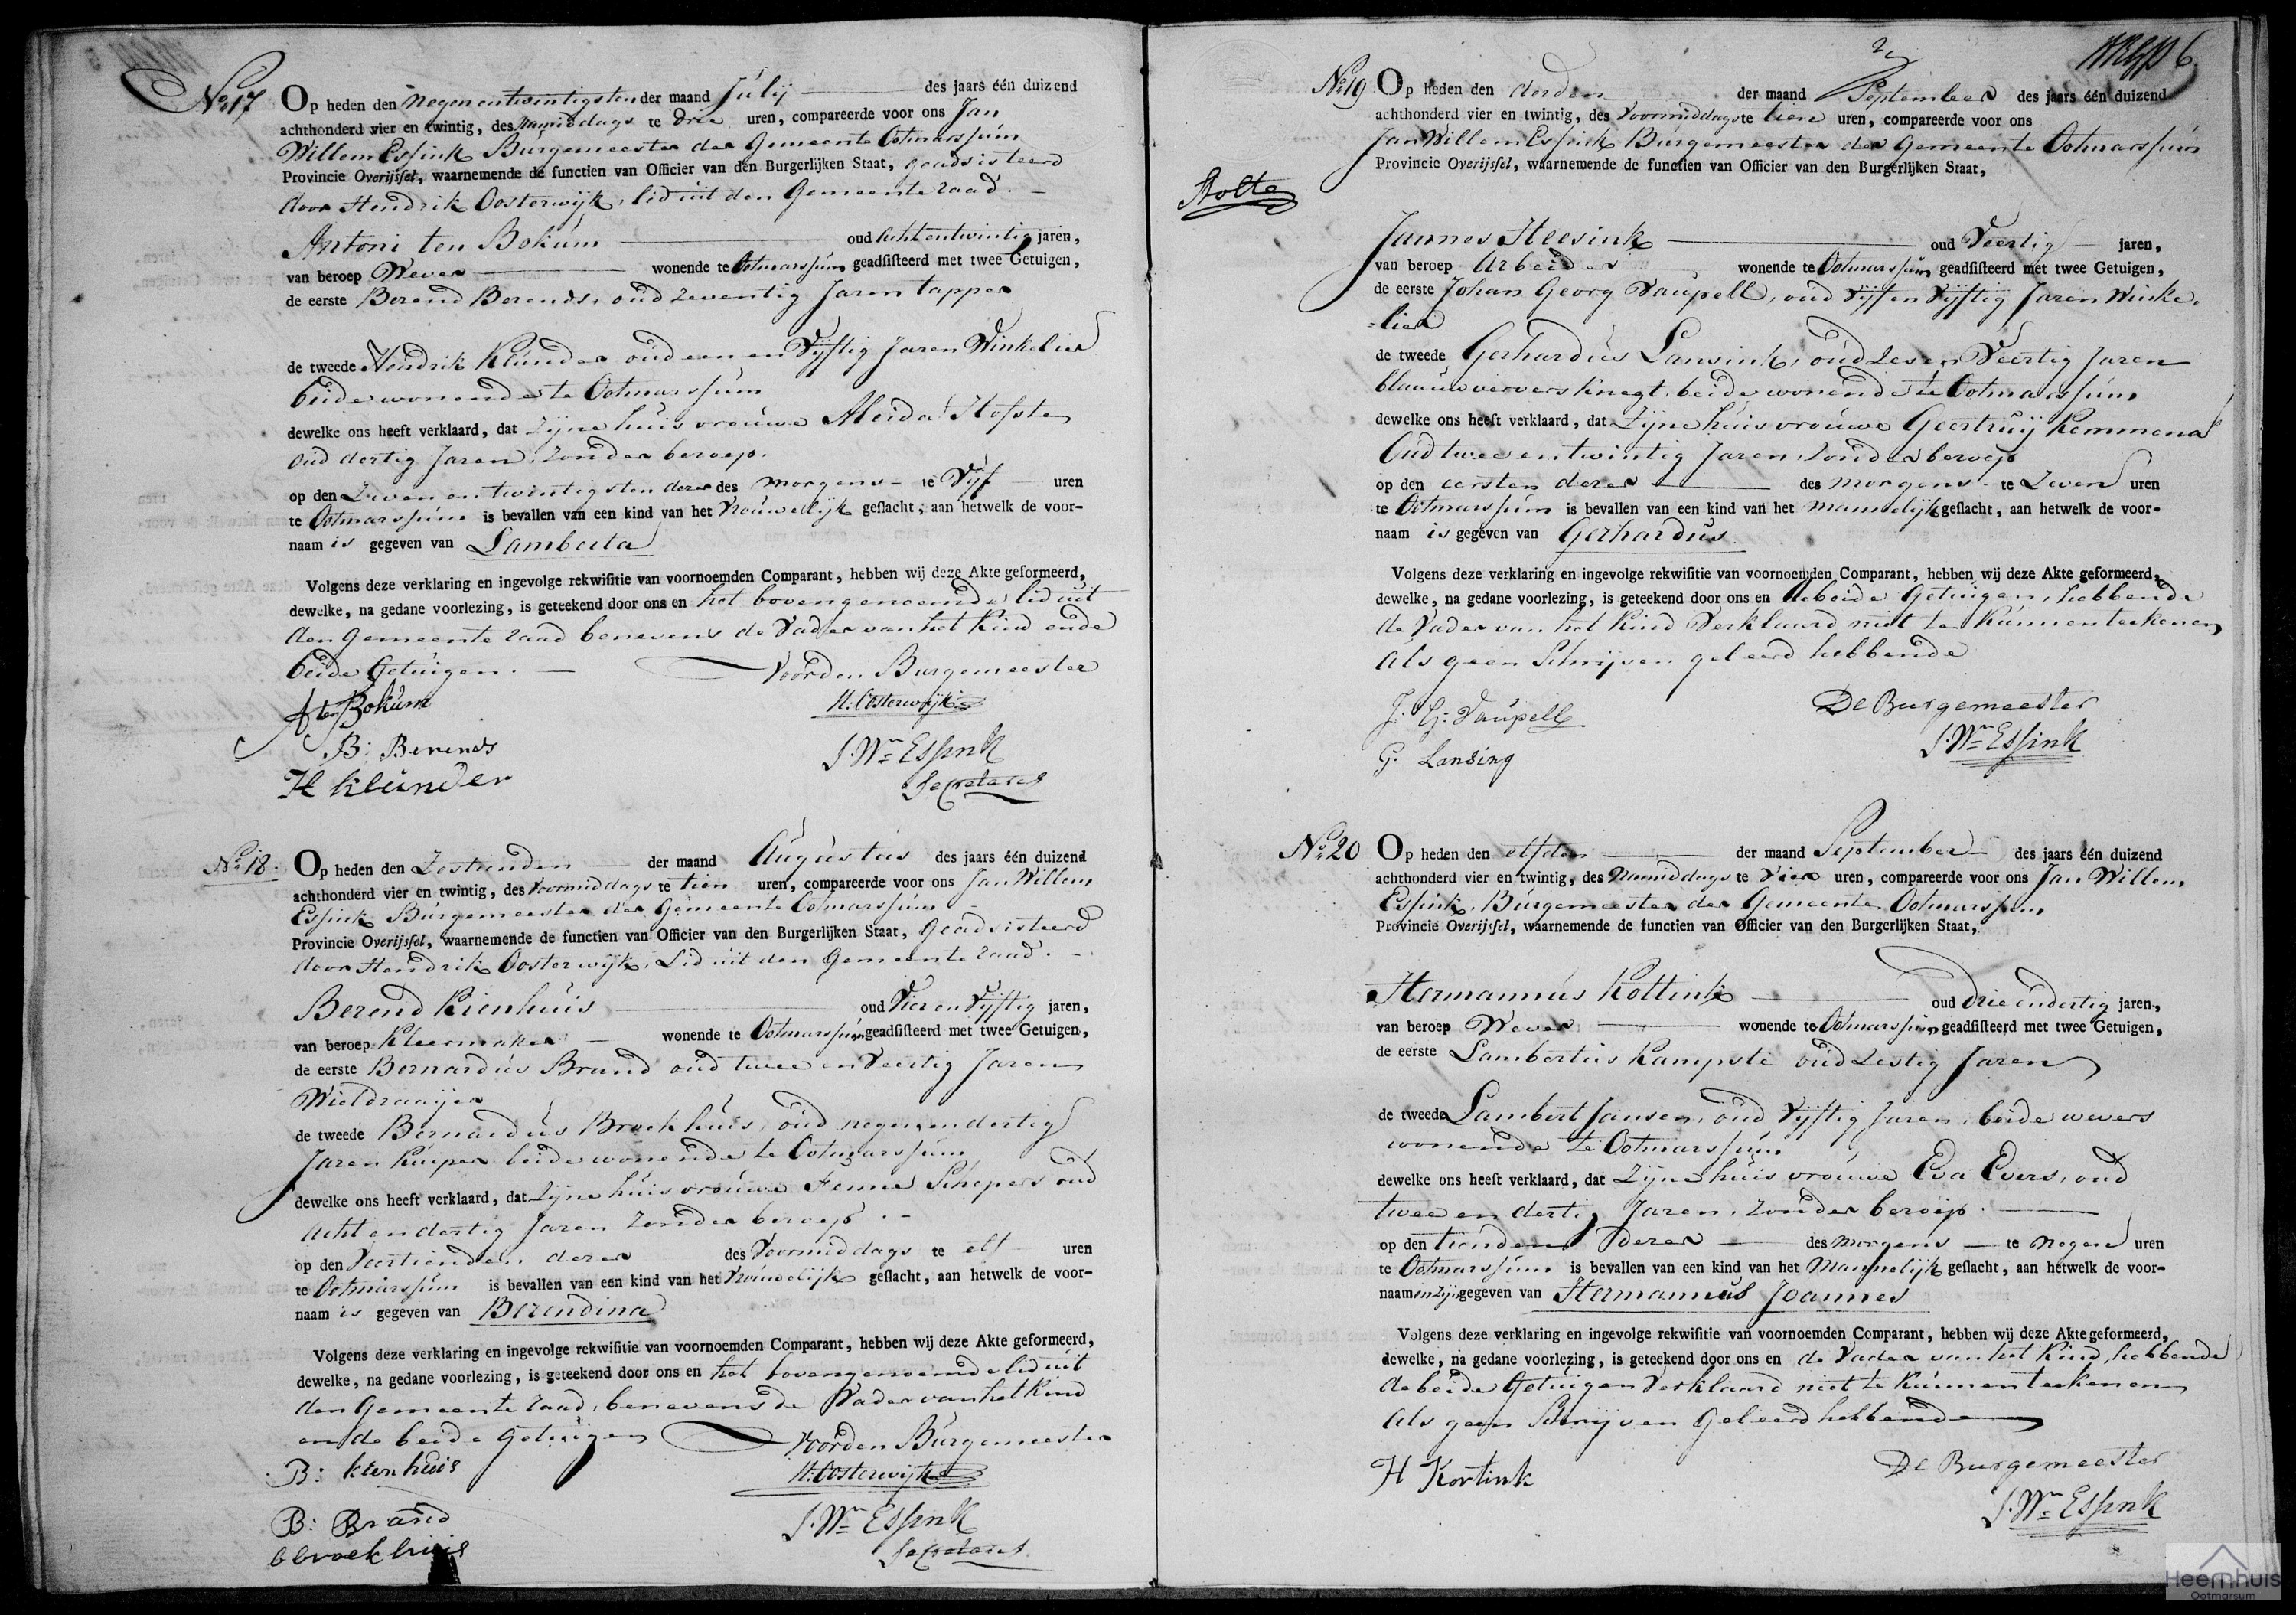 No 17 Op heden den Negenentwintigsten der maand Julij des jaars één duizend
achthonderd vier en twintig, des Namiddags te drie uren, compareerde voor ons Jan
Willem Essink Burgemeester der Gemeente Ootmarssum
Provincie Overijssel, waarnemende de functien van Officier van den Burgerlijken Staat, geadsisteerd
door Hendrik Oosterwijk, lid uit den Gemeente raad.
Antoni ten Bokum oud achtentwintig jaren,
van beroep Wever wonende te Ootmarssum geadsisteerd met twee Getuigen,
de eerste Berend Berends, oud zeventig Jaren tapper
de tweede Hendrik Klunder oud een en Vijftig Jaren Winkelier
beide wonende te Ootmarssum
dewelke ons heeft verklaard, dat Zijne huisvrouwe Aleida Hofste
oud dertig Jaren, zonder beroep.
op den Zevenentwintigsten dezer des morgens te Vijf uren
te Ootmarssum is bevallen van een kind van het Vrouwelijk geslacht, aan hetwelk de voor-
naam is gegeven van Lamberta
Volgens deze verklaring en ingevolge rekwisitie van voornoemden Comparant, hebben wij deze Akte geformeerd,
dewelke, na gedane voorlezing, is geteekend door ons en het bovengenoemde lid uit
den Gemeente raad benevens de Vader van het Kind ende
beide Getuigen.
Voor den Burgemeester
A ten Bokum
H: Oosterwijk
B: Berends
J. Wm Essink
H Klunder
Secretaris
No 18. Op heden den Zestienden der maand Augustus des jaars één duizend
achthonderd vier en twintig, des Voormiddags te tien uren, compareerde voor ons Jan Willem
Essink Burgemeester der Gemeente Ootmarssum
Provincie Overijssel, waarnemende de functien van Officier van den Burgerlijken Staat, Geadsisteerd
door Hendrik Oosterwijk, Lid uit den Gemeente raad.
Berend Kienhuis oud Vier en Vijftig jaren,
van beroep Kleermaker wonende te Ootmarssum geadsisteerd met twee Getuigen,
de eerste Bernardus Brand oud twee en Veertig Jaren
Wieldraaijer
de tweede Bernardus Broekhuis, oud negenendertig
Jaren Kuiper beide wonende te Ootmarssum
dewelke ons heeft verklaard, dat Zijne huisvrouwe Fenne Schepers oud
Acht en dertig Jaren zonder beroep.
op den Veertienden dezer des Voormiddags te elf uren
te Ootmarssum is bevallen van een kind van het Vrouwelijk geslacht, aan hetwelk de voor-
naam is gegeven van Berendina
Volgens deze verklaring en ingevolge rekwisitie van voornoemden Comparant, hebben wij deze Akte geformeerd,
dewelke, na gedane voorlezing, is geteekend door ons en het bovengenoemde lid uit
den Gemeente raad, benevens de Vader van het Kind
en de beide Getuigen
Voor den Burgemeester
B: Kienhuis
H: Oosterwijk
B: Brand
J. Wm Essink
b broekhuis
Secretaris
6
No 19 Op heden den derden der maand September des jaars één duizend
achthonderd vier en twintig, des Voormiddags te tien uren, compareerde voor ons
Jan Willem Essink Burgemeester der Gemeente Ootmarssum
Provincie Overijssel, waarnemende de functien van Officier van den Burgerlijken Staat,
Stolte
Jannes Heesink oud Veertig jaren,
van beroep Arbeider wonende te Ootmarssum geadsisteerd met twee Getuigen,
de eerste Johan Georg Vaupell, oud Vijf en Vijftig Jaren Winke-
=lier
de tweede Gerhardus Lansink, oud zes en Veertig Jaren
blauwververs Knegt, beide wonende te Ootmarssum
dewelke ons heeft verklaard, dat Zijne huisvrouwe Geertruij Kemmena
Oud twee entwintig Jaren, zonder beroep
op den eersten dezer des morgens te Zeven uren
te Ootmarssum is bevallen van een kind van het mannelijk geslacht, aan hetwelk de voor-
naam is gegeven van Gerhardus
Volgens deze verklaring en ingevolge rekwisitie van voornoemden Comparant, hebben wij deze Akte geformeerd,
dewelke, na gedane voorlezing, is geteekend door ons en de beide Getuigen, hebbende
de Vader van het Kind Verklaard niet te Kunnen teekenen
Als geen Schrijven geleerd hebbende
De Burgemeester
J: G: Vaupell
J. Wm Essink
G. Lansing
No 20 Op heden den elfden der maand September des jaars één duizend
achthonderd vier en twintig, des Namiddags te Vier uren, compareerde voor ons Jan Willem
Essink, Burgemeester der Gemeente Ootmarssum
Provincie Overijssel, waarnemende de functien van Officier van den Burgerlijken Staat,
Hermannus Kottink oud drie endertig jaren,
van beroep Wever wonende te Ootmarssum geadsisteerd met twee Getuigen,
de eerste Lambertus Kampste oud zestig Jaren
de tweede Lambert Jansen, oud Vijftig Jaren, beide wevers
wonende te Ootmarssum
dewelke ons heeft verklaard, dat Zijne huisvrouwe Eva Evers, oud
twee en dertig Jaren, zonder beroep.
op den tienden dezer des morgens te Negen uren
te Ootmarssum is bevallen van een kind van het Mannelijk geslacht, aan hetwelk de voor-
naamen zijn gegeven van Hermannus Joannes
Volgens deze verklaring en ingevolge rekwisitie van voornoemden Comparant, hebben wij deze Akte geformeerd,
dewelke, na gedane voorlezing, is geteekend door ons en de Vader van het Kind, hebbende
de beide Getuigen Verklaard niet te Kunnen teekenen
Als geen Schrijven Geleerd hebbende
De Burgemeester
H Kortink
J. Wm Essink
Heemhuis
Ootmarsum